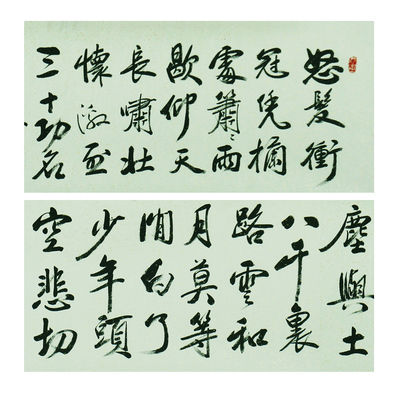 怒髮衝
冠凭欄
處簫〻雨
歇仰天
長嘯壯
懷激烈
三十功名
塵與土
八千裏
路雲和
月莫等
閒白了
少年頭
空悲切